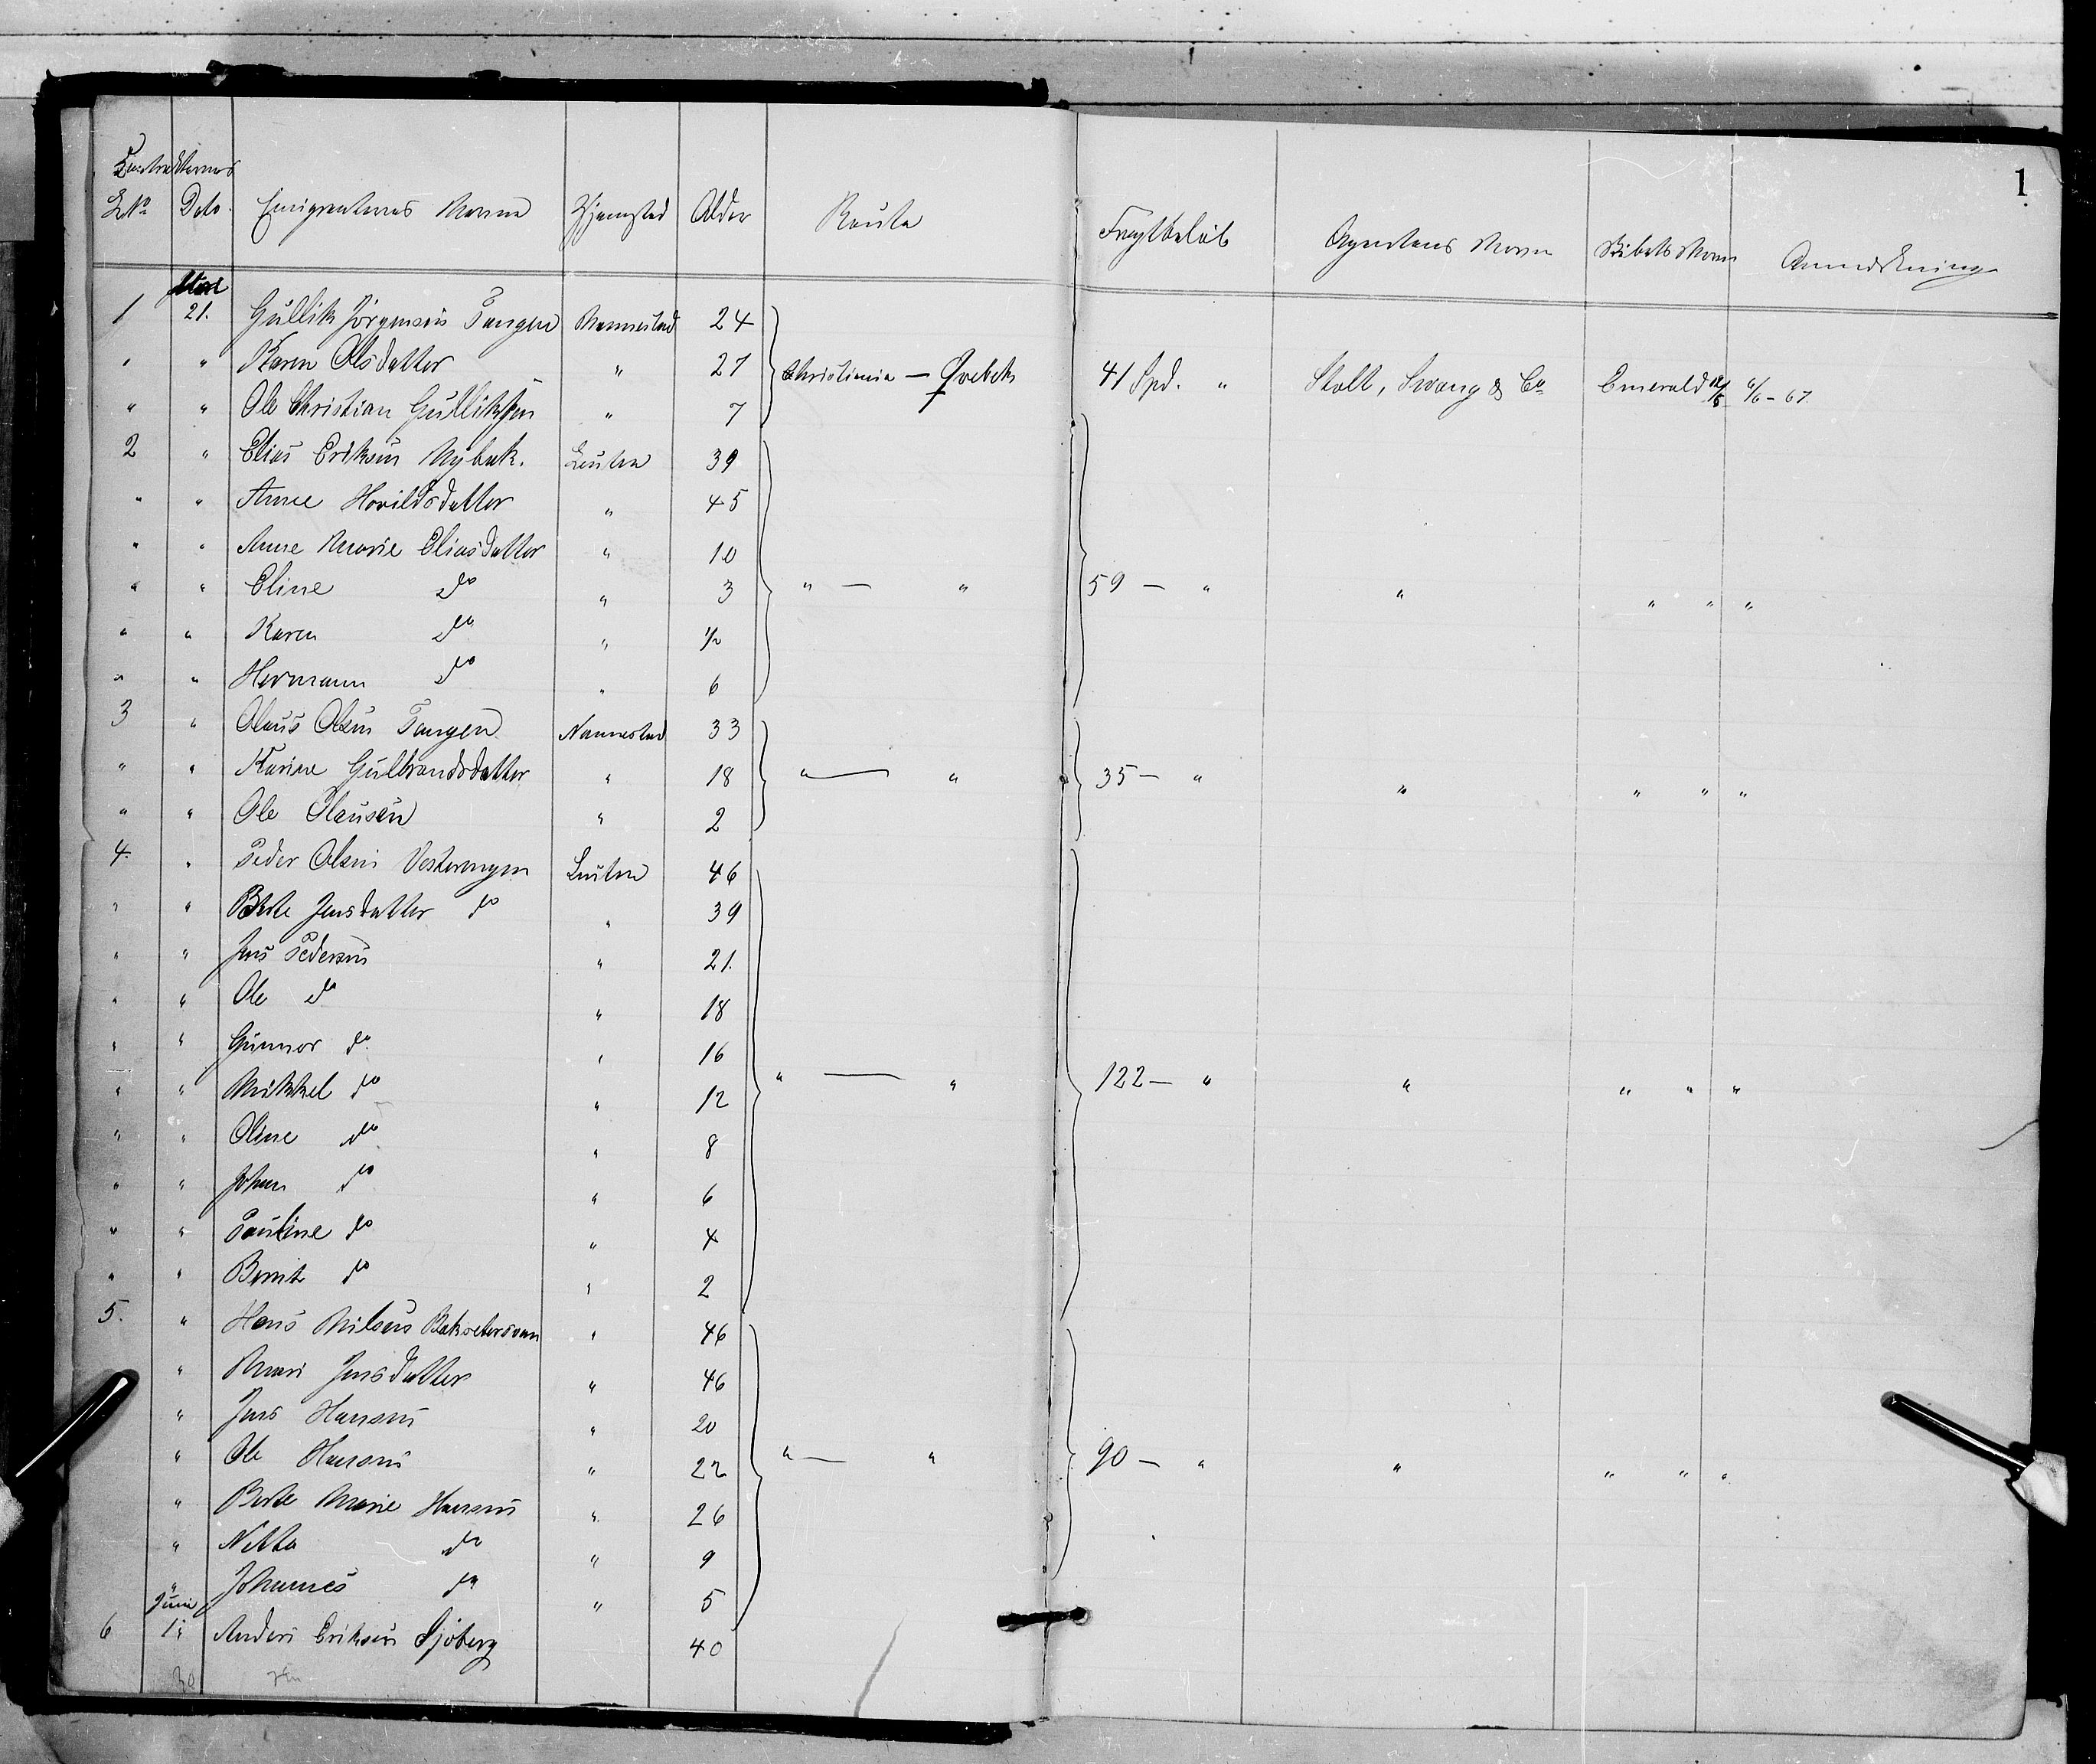 1
Contrakternes
L№ Dato. Emigranternes Navne Hjemsted Alder Route Fragtbeløb Agentens Navn Skibets Navn Anmærkning
1 Mai 21. Gullik Jörgensen Tangen Nannestad 24
" " Karen Olsdatter " 27 Christiania — Qvebek 41 Spd. " Stolt, Svang & Co Emerald 6/6 - 67.
" " Ole Christian Gulliksen " 7
2 " Elias Eriksen Nybak. Leuten 39
" " Anne Havildsdatter " 45
" " Anne Marie Eliasdatter " 10
" " Eline do " 3 " — " 59 — " " " " "
" " Karen do " 1/2
" " Hermann do " 6
3 " Olaus Olsen Tangen Nannestad 33
" " Karine Gulbrandsdatter " 18 " — " 35 — " " " " "
" " Ole Olausen " 2
4. " Peder Olsen Vesterengen Leuten 46
" " Berte Jensdatter do " 39
" " Jens Pedersen " 21.
" " Ole do " 18
" " Gunnor do " 16
" " Mikkel do " 12 " — " 122 — " " " " "
" " Oline do " 8
" " Johan do " 6
" " Pauline do " 4
" " Bernt do " 2
5. " Hans Nilsen " 46
" Mari Jensdatter " 46
" Jens Hansen " 20
" Ole Hansen " 22 " — " 90 — " " " " "
" Berte Marie Hansen " 26
" Netta do " 9
" Johannes do " 5
6 Juni 1. Anders Eriksen Sjöberg 40
30